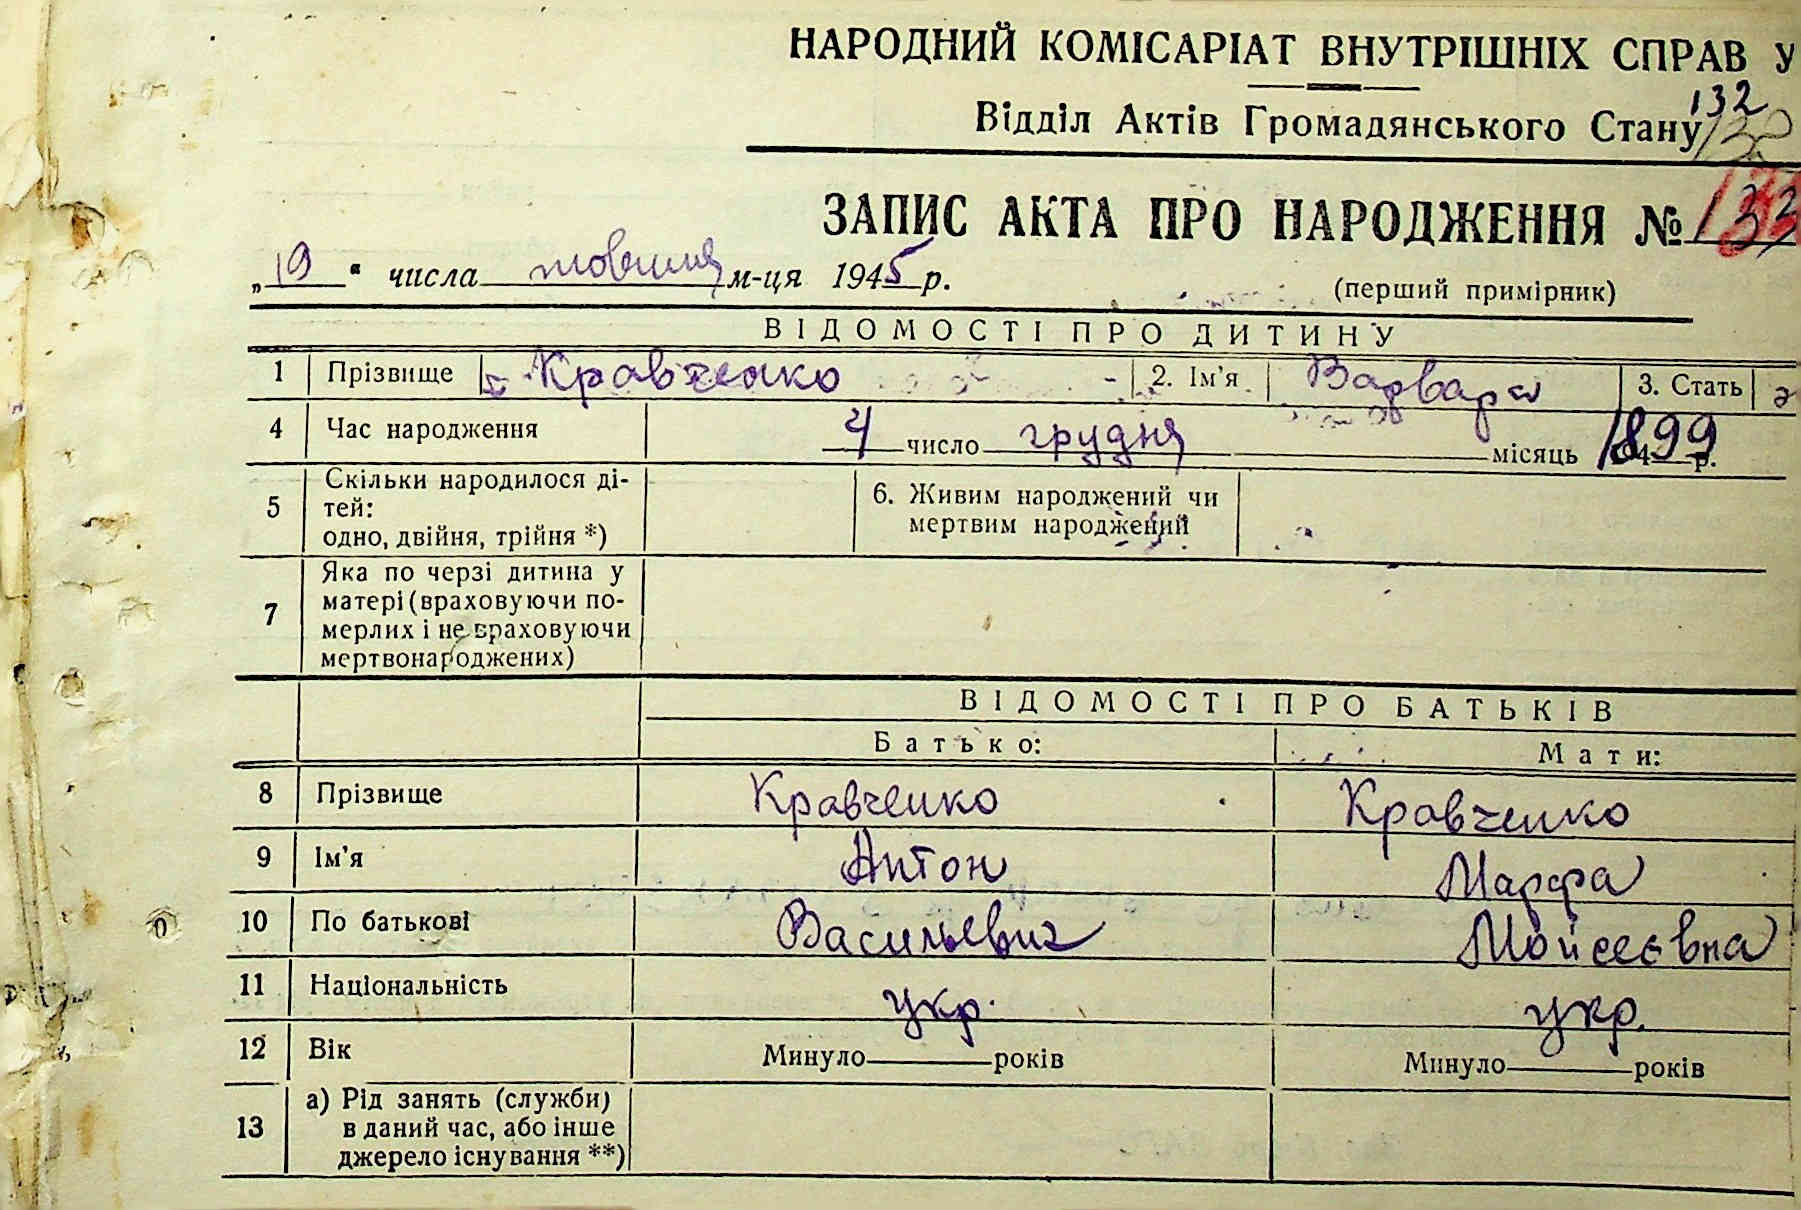 НАРОДНИЙ КОМІСАРІАТ ВНУТРІШНІХ СПРАВ У
132
Відділ Актів Громадянського Стану
ЗАПИС АКТА ПРО НАРОДЖЕННЯ № 133
„19“ числа жовтня м-ця 1945 р.
(перший примірник)
ВІДОМОСТІ ПРО ДИТИНУ
1 Прізвище Кравченко 2. Ім'я Варвара 3. Стать
4 Час народження 4 число грудня місяць 1899 р.
5 Скільки народилося ді-
тей:
одно, двійня, трійня *)
6. Живим народжений чи
мертвим народжений
7 Яка по черзі дитина у
матері (враховуючи по-
мерлих і не враховуючи
мертвонароджених)
ВІДОМОСТІ ПРО БАТЬКІВ
Батько: Мати:
8 Прізвище Кравченко Кравченко
9 Ім'я Антон Марфа
10 По батькові Васильевич Мойсеєвна
11 Національність укр. укр.
12 Вік Минуло років Минуло років
13 а) Рід занять (служби)
в даний час, або інше
джерело існування **)